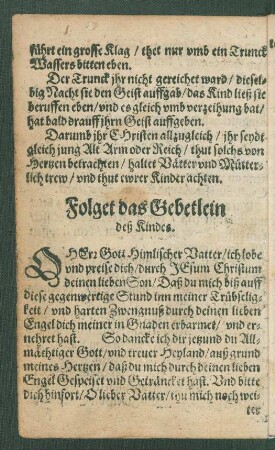 führt ein grosse Klag / thet nur vmb ein Trunck
Wassers bitten eben.
Der Trunck jhr nicht gereichet ward / diesel-
big Nacht sie den Geist auffgab / das Kind ließ sie
beruffen eben / vnd es gleich vmb verzeihung bat /
hat bald drauff jhrn Geist auffgeben.
Darumb jhr Christen allzugleich / jhr seydt
gleich jung Alt Arm oder Reich / thut solchs von
Hertzen betrachten / haltet Vätter vnd Mütter-
lich trew / vnd thut ewrer Kinder achten.
Folget das Gebetlein
deß Kindes.
O HErr Gott Himlischer Vatter / ich lobe
vnd preise dich / durch JEsum Christum
deinen lieben Son / Daß du mich biß auff
diese gegenwertige Stund inn meiner Trübselig-
keit / vnd harten Zwengnuß durch deinen lieben
Engel dich meiner in Gnaden erbarmet / vnd er-
nehret hast. So dancke ich dir jetzund du All-
mächtiger Gott / vnd treuer Heyland / auß grund
meines Hertzen / daß du mich durch deinen lieben
Engel Gespeiset vnd Geträncket hast. Vnd bitte
dich hinfort / O lieber Vatter / thu mich noch wei-
ter